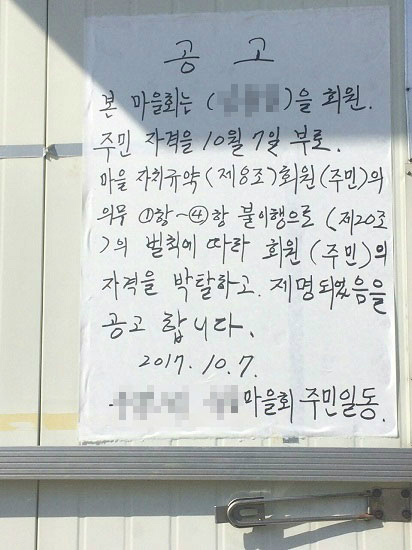 공 고
본 마을회는 ( )을 회원.
주민 자격을 10월 7일 부로.
마을 자치규약(제8조)회원(주민)의
의무 ①항~④항 불이행으로 (제20조
)의 벌칙에 따라 회원 (주민)의
자격을 박탈하고. 제명되었음을
공고 합니다.
2017. 10. 7.
마을회 주민일동.